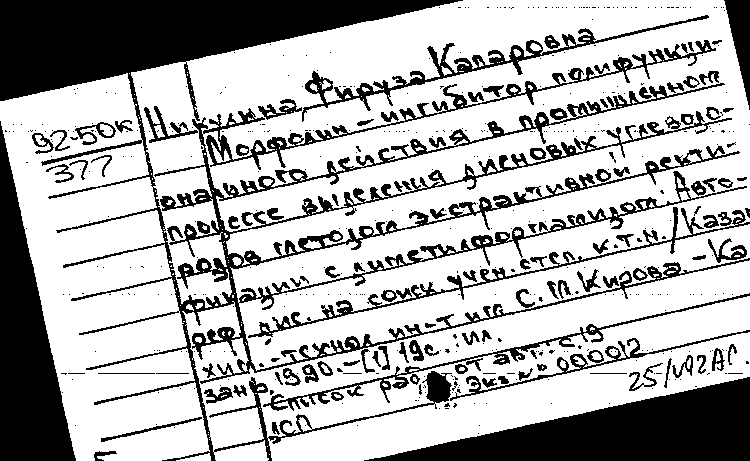 92-50к
377
Никулина, Фируза Капаровна
Морфолин - ингибитор полифункци-
онального действия в промышленном
процессе выделения диеновых углеводо-
родов методом экстрактивной ректи-
фикации с диметилформамидом: Авто-
реф. дис. на соиск. учен. степ. к.т.н. / Казан
хим.-технол. ин-т им. С. М. Кирова. - Ка
зань, 1990. - [1], 19 с. : ил.
Список раб от авт.: с. 19
Экз № 000012
ДСП